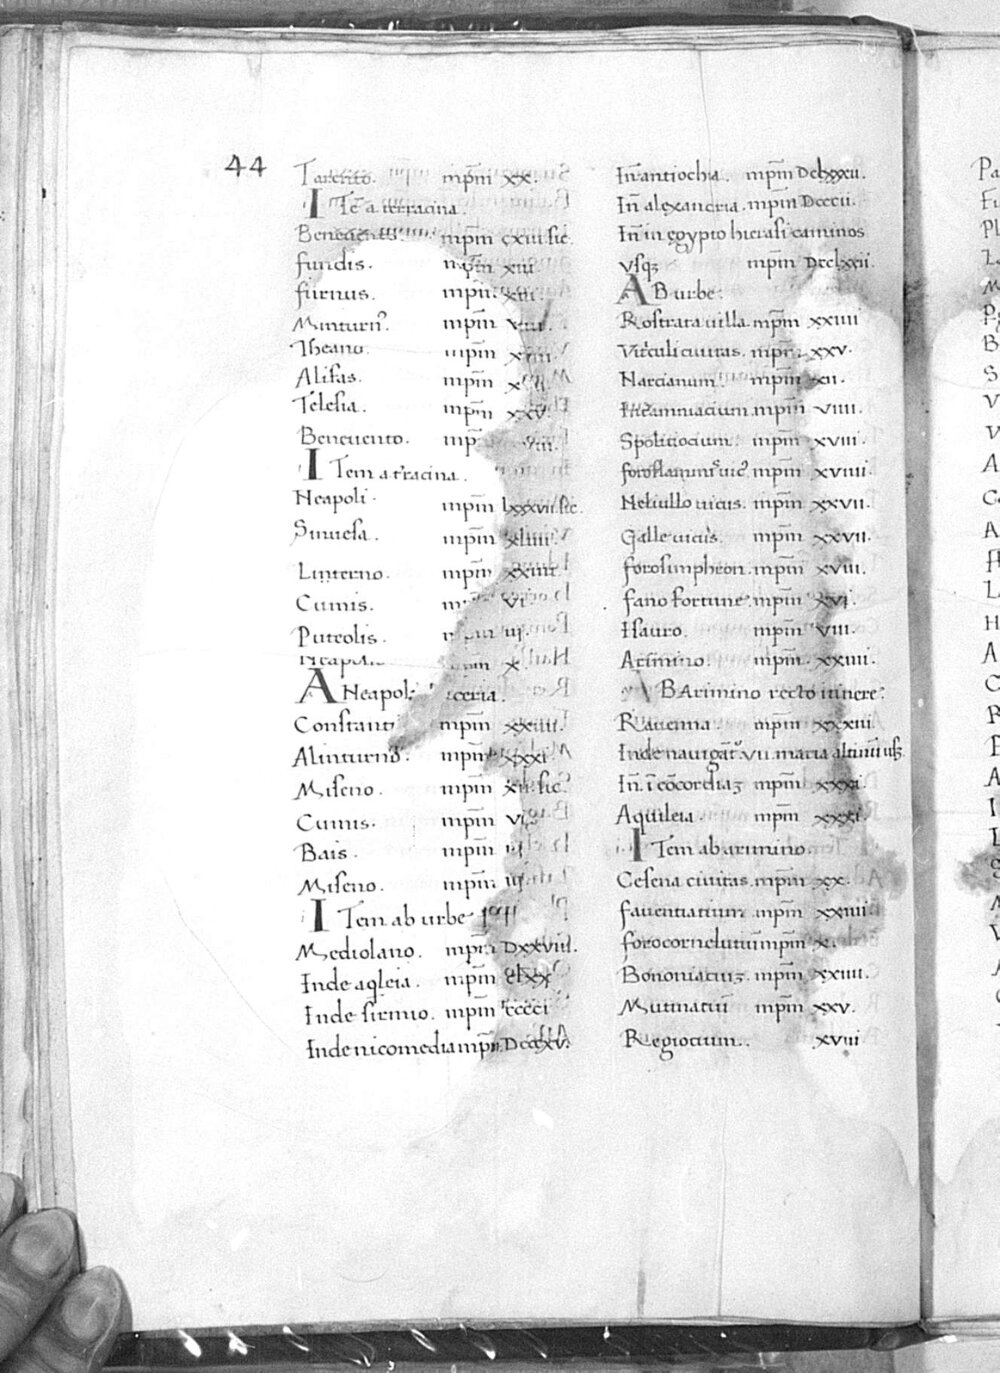 44
Tarento. mpm̄ xx.
ITē a terracina.
Beneuento. mpm̄ cxiii. sic.
fundis. mpm̄ xiii.
furnus. mpm̄ xiii.
Minturn̄. mpm̄ viiii.
Theano. mpm̄
Alifas. mpm̄
Telesia. mpm̄ xxv.
Beneuento. mp
ITem a t̄racina.
Neapoli. mpm̄ lxxxvii. sic.
Sinuesa. mpm̄ xliiii.
Linterno. mpm̄ xxiiii.
Cumis. vi.
Puteolis. iii.
Neapoli. x.
A Neapoli
Constanti mpm̄ xxiiii.
Alinturno. mpm̄ xxxi.
Miseno. mpm̄ xii. sic.
Cumis. mpm̄ vi.
Bais. mpm̄ iii
Miseno. mpm̄ iii
ITem ab urbe
Mediolano. mpm̄ Dxxviii.
Inde aqleia. mpm̄ clxx
Inde sirmio. mpm̄ cccci
Inde nicomedia mpm̄. Dccxv.
In̄ antiochia. mpm̄ Dclxxxii.
In̄ alexandria. mpm̄ Dcccii.
In̄ in egypto hierasicaminos
usqꝫ mpm̄ Dcclxxii.
AB urbe.
Rostrata uilla. mpm̄ xxiiii
Vtriculi ciuitas. mpm̄ xxv.
Narcianum. mpm̄ xii.
Interamniacium. mpm̄ viiii.
Spolitiocium. mpm̄ xviii.
foroflamini uic̄ mpm̄ xviiii.
Heluillo uicus. mpm̄ xxvii.
Galle uicus. mpm̄ xxvii.
forosimphron. mpm̄ xviii.
fano fortune. mpm̄ xvi.
Hauro. mpm̄ viii.
Arimino. mpm̄. xxiiii.
AB Arimino recto itinere:
Rauenna. mpm̄ xxxiii.
Inde nauigat̄. vii. maria altinū usqꝫ.
In̄. ī cōcordiaꝫ mpm̄ xxxi.
Aquileia. mpm̄ xxxi.
ITem ab arimino.
Cesena ciuitas. mpm̄ xx.
fauentiatium mpm̄ xxiiii.
forocornelutiū mpm̄ x.
Bononiaciuꝫ. mpm̄ xxiiii.
Mutinatiū mpm̄ xxv.
Regiocium.. xviii